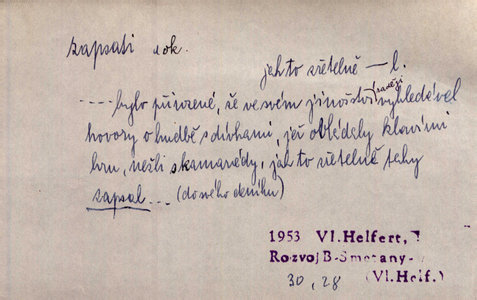 zapsati dok.
jak to zřetelně — l.
---- bylo přirozené, že ve svém jinošství raději vyhledával
hovory o hudbě s dívkami, jež ovládaly klavírní
hru, nežli s kamarády, jak to zřetelně taky
zapsal... (do svého deníku)
1953 Vl.Helfert,
Rozvoj B-Smetany-
30, 28 (Vl.Helf.)